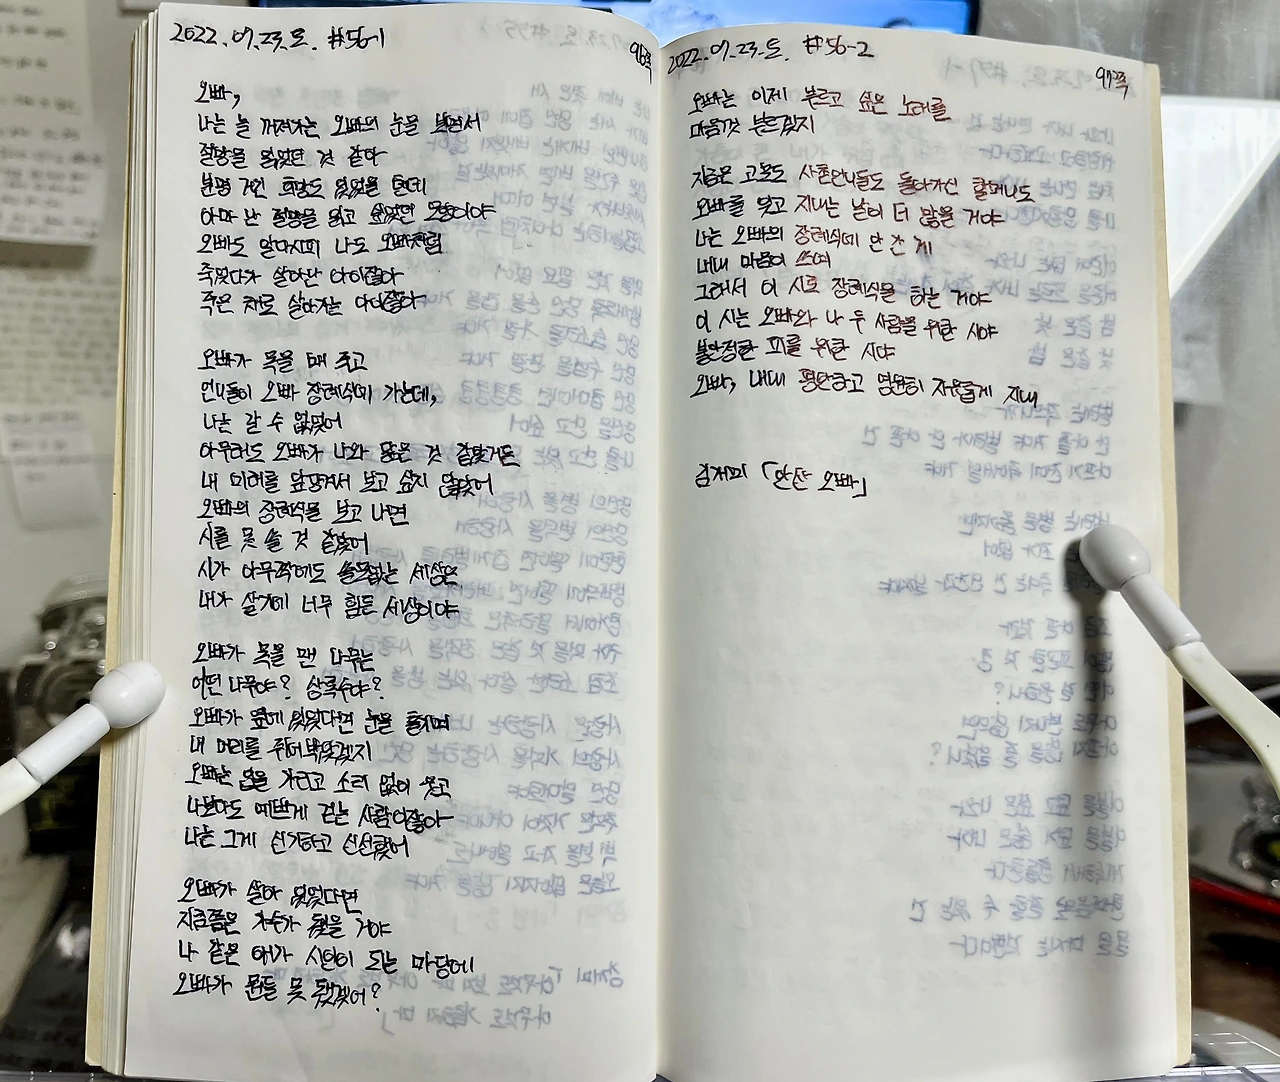 2022.07.23.토. #56-1
96쪽
오빠,
나는 늘 꺼져가는 오빠의 눈을 보면서
절망을 읽었던 것 같아
분명 거긴 희망도 있었을 텐데
아마 난 절망을 읽고 싶었던 모양이야
오빠도 알다시피 나도 오빠처럼
죽었다가 살아난 아이잖아
죽은 채로 살아가는 아이잖아
오빠가 목을 매 죽고
언니들이 오빠 장례식에 가는데,
나는 갈 수 없었어
아무래도 오빠가 나와 닮은 것 같았거든
내 미래를 앞당겨서 보고 싶지 않았어
오빠의 장례식을 보고 나면
시를 못 쓸 것 같았어
시가 아무짝에도 쓸모없는 세상은
내가 살기에 너무 힘든 세상이야
오빠가 목을 맨 나무는
어떤 나무야? 상록수야?
오빠가 옆에 있었다면 눈을 흘기며
내 머리를 쥐어박았겠지
오빠는 입을 가리고 소리 없이 웃고
나보다도 예쁘게 걷는 사람이잖아
나는 그게 신기하고 신선했어
오빠가 살아 있었다면
지금쯤은 가수가 됐을 거야
나 같은 애가 시인이 되는 마당에
오빠가 뭔들 못 됐겠어?
2022.07.23.토. #56-2
97쪽
오빠는 이제 부르고 싶은 노래를
마음껏 부르겠지
지금은 고모도 사촌언니들도 돌아가신 할머니도
오빠를 잊고 지내는 날이 더 많을 거야
나는 오빠의 장례식에 안 간 게
내내 마음이 쓰여
그래서 이 시로 장례식을 하는 거야
이 시는 오빠와 나 두 사람을 위한 시야
불안정한 피를 위한 시야
오빠, 내내 평안하고 영원히 자유롭게 지내
김개미 「안산 오빠」